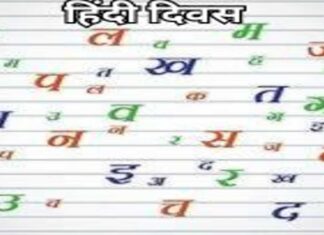 हिंदी दिवस
ल व म ज
म त ख ह
प ल क त ग
उ व ग ह
न न र स ज
प इ अ द र ख
उ व च द